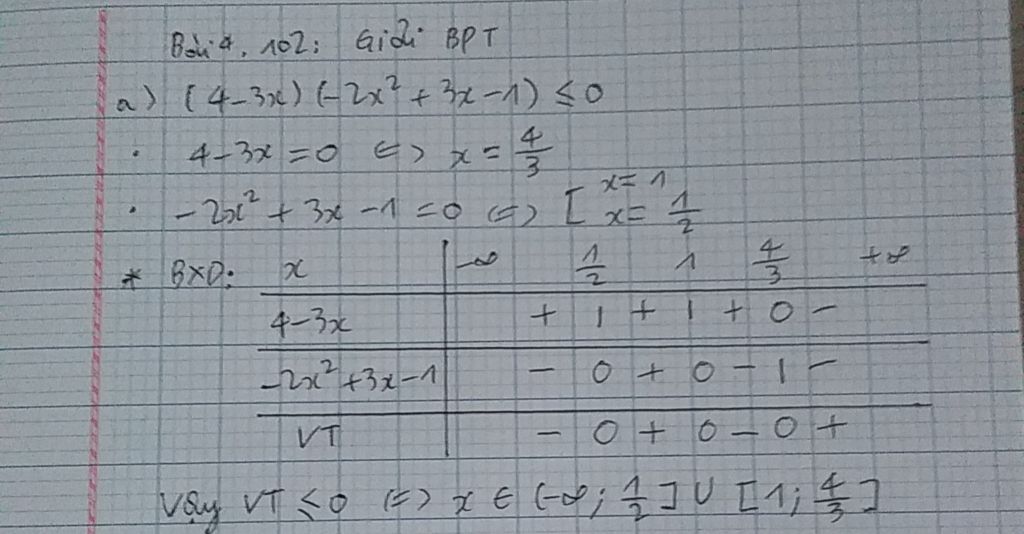 Bài 4.102: Giải BPT
a) (4-3x)(-2x² + 3x - 1) ≤ 0
· 4-3x = 0 <=> x = 4/3
· -2x² + 3x - 1 = 0 <=> [ x = 1 x = 1/2
* BXD: x | -∞ 1/2 1 4/3 +∞
4-3x | + | + | + 0 -
-2x² + 3x - 1 | - 0 + 0 - | -
VT | - 0 + 0 - 0 +
Vậy VT ≤ 0 <=> x ∈ (-∞; 1/2] ∪ [1; 4/3]